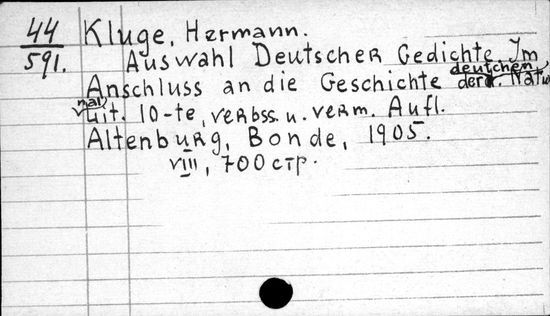 44
591.
Kluge, Hermann.
Auswahl Deutscher Gedichte Im
Anschluss an die Geschichte der deutchen Natio
nal Lit. 10-te, verbss. u. verm. Aufl.
Altenburg, Bonde, 1905.
VIII, 700 стр.